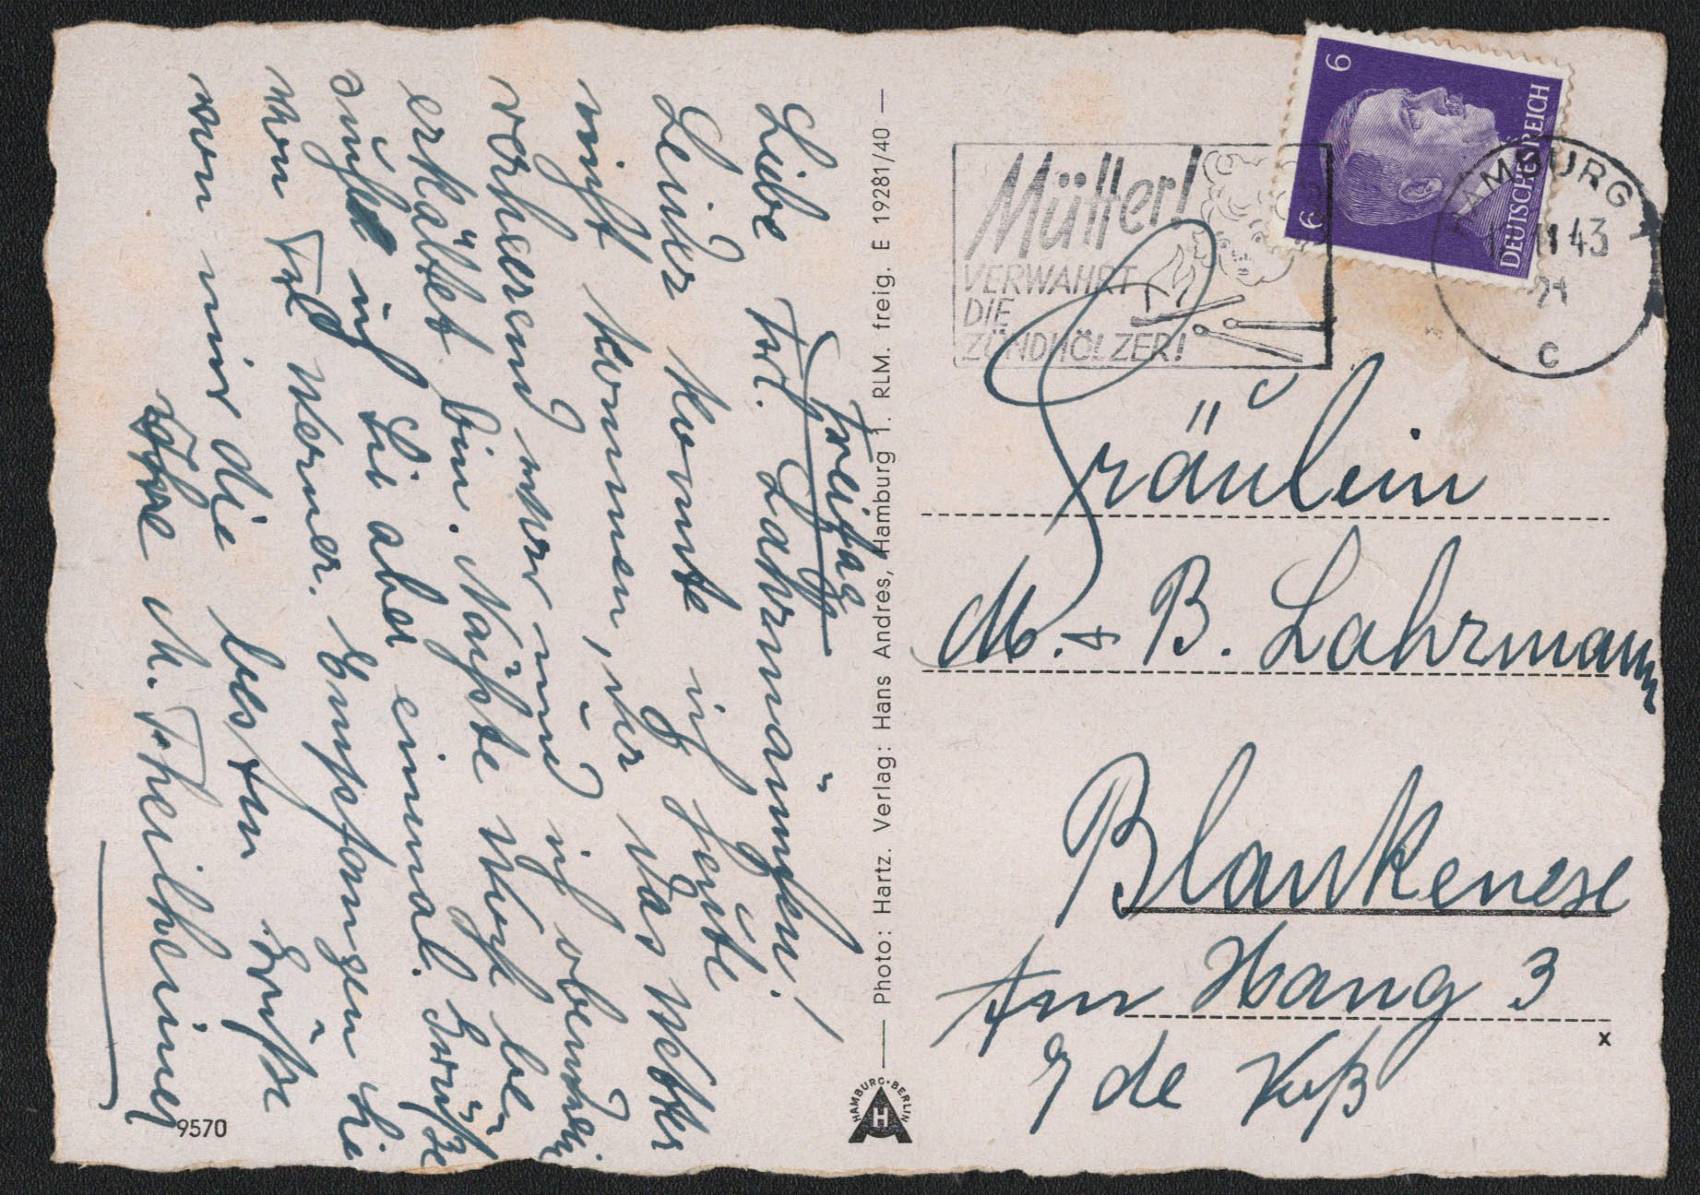 Freitag
Liebe Frl. Lahrmann!
Leider konnte ich heute
nicht kommen, da das Wetter
verheerend war und ich obendrein
erkältet bin. Nächste Woche be-
suche ich Sie aber einmal. Grüße
von Werner. Empfangen Sie
von mir die besten Grüße
Ihre M. Theilheimer
Photo: Hartz. Verlag: Hans Andres, Hamburg 1. RLM. freig. E 19281/40
HAMBURG·BERLIN
H
9570
Mütter!
VERWAHRT
DIE
ZÜNDHÖLZER!
6
6
DEUTSCHES REICH
HAMBURG 1
11 43
21
c
Fräulein
M. + B. Lahrmann
Blankenese
Am Hang 3
x